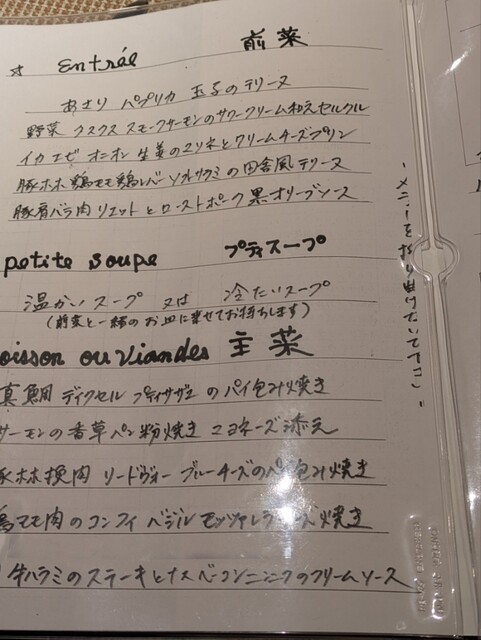 ☆ Entrée 前菜
あさり パプリカ 玉子のテリーヌ
野菜 クスクス スモークサーモンのサワークリーム和え セルクル
イカ エビ オニオン 生姜の
とクリームチーズプリン
豚ホホ 鶏モモ 鶏レバー ソトサクミの田舎風テリーヌ
豚肩バラ肉 リエットとローストポーク 黒オリーブソース
petite soupe プティスープ
温かいスープ 又は 冷たいスープ
(前菜と一緒のお皿に乗せてお持ちします)
oisson ou viandes 主菜
真鯛 デュクセル プティサザエ のパイ包み焼き
サーモンの香草パン粉焼き マヨネーズ添え
豚ホホ挽肉 リードヴォー ブルーチーズのパイ包み焼き
鶏モモ肉のコンフィ バジル モッツァレラチーズ焼き
牛ハラミのステーキとナス ベーコン ニンニクのクリームソース